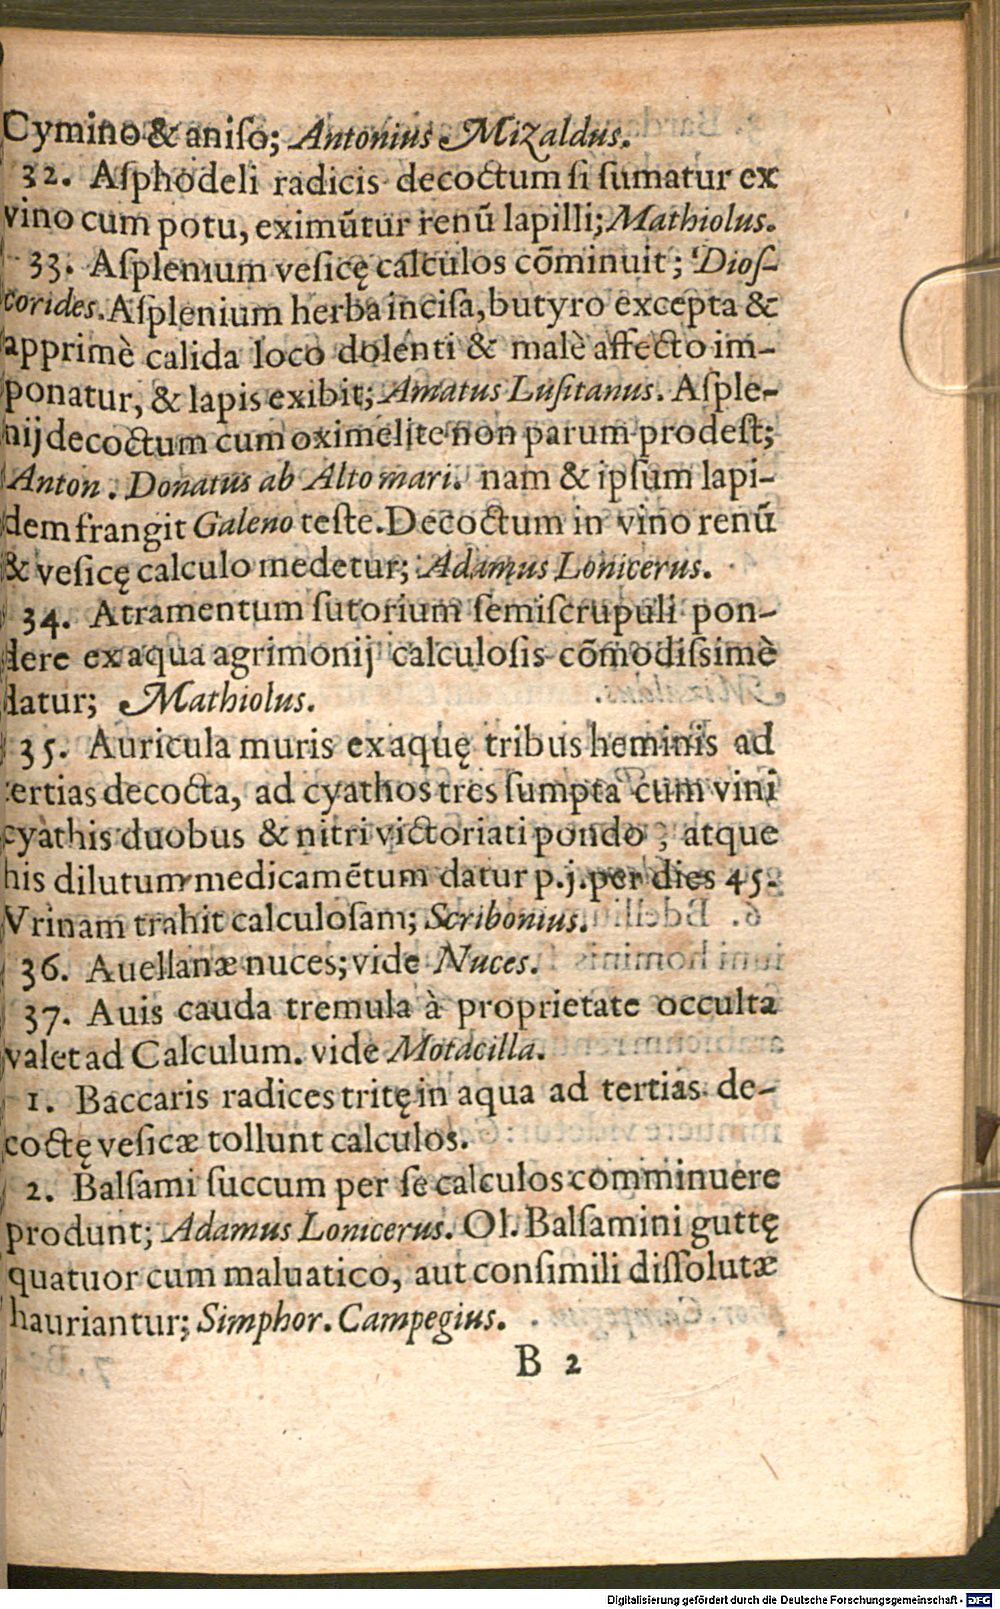 Cymino & aniſo; Antonius Mizaldus.
32. Aſphodeli radicis decoctum ſi ſumatur ex
vino cum potu, eximũtur renũ lapilli; Mathiolus.
33. Aſplenium veſicę calculos cõminuit; Dioſ-
corides. Aſplenium herba inciſa, butyro excepta &
apprimè calida loco dolenti & malè affecto im-
ponatur, & lapis exibit; Amatus Luſitanus. Aſple-
nij decoctum cum oximelite non parum prodeſt;
Anton. Donatus ab Alto mari. nam & ipſum lapi-
dem frangit Galeno teſte. Decoctum in vino renũ
& veſicę calculo medetur; Adamus Lonicerus.
34. Atramentum ſutorium ſemiscrupuli pon-
dere ex aqua agrimonij calculoſis cõmodiſsimè
datur; Mathiolus.
35. Auricula muris ex aquę tribus heminis ad
tertias decocta, ad cyathos tres ſumpta cum vini
cyathis duobus & nitri victoriati pondo, atque
his dilutum medicamẽtum datur p.j. per dies 45.
Vrinam trahit calculoſam; Scribonius.
36. Auellanæ nuces; vide Nuces.
37. Auis cauda tremula à proprietate occulta
valet ad Calculum. vide Motacilla.
1. Baccaris radices tritę in aqua ad tertias de-
coctę veſicæ tollunt calculos.
2. Balſami ſuccum per ſe calculos comminuere
produnt; Adamus Lonicerus. Ol. Balſamini guttę
quatuor cum maluatico, aut conſimili diſſolutæ
hauriantur; Simphor. Campegius.
B 2
Digitalisierung gefördert durch die Deutsche Forschungsgemeinschaft - DFG